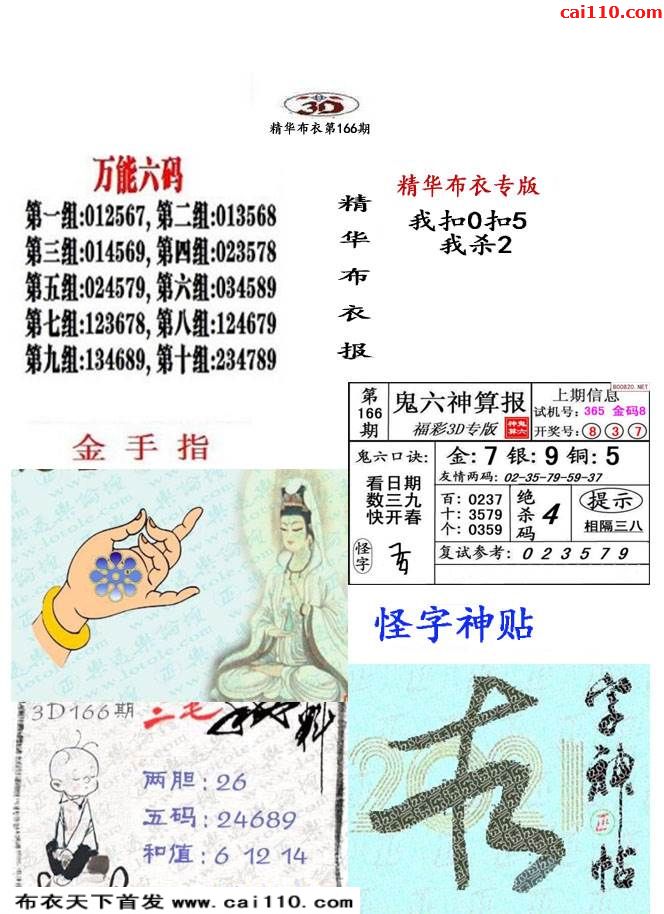 cai110.com
3D
精华布衣第166期
万能六码
第一组:012567, 第二组:013568
第三组:014569, 第四组:023578
第五组:024579, 第六组:034589
第七组:123678, 第八组:124679
第九组:134689, 第十组:234789
精华布衣报
精华布衣专版
我扣0扣5
我杀2
金手指
800820.NET
第166期
鬼六神算报
福彩3D专版
上期信息
试机号: 365 金码8
开奖号: 8 3 7
鬼六口诀:
看日期
数三九
快开春
金: 7 银: 9 铜: 5
友情两码: 02-35-79-59-37
百: 0237
十: 3579
个: 0359
绝杀码
4
提示
相隔三八
怪字
复试参考: 0 2 3 5 7 9
怪字神贴
3D166期
二毛
两胆: 26
五码: 24689
和值: 6 12 14
字神帖
2021
布衣天下首发 www.cai110.com